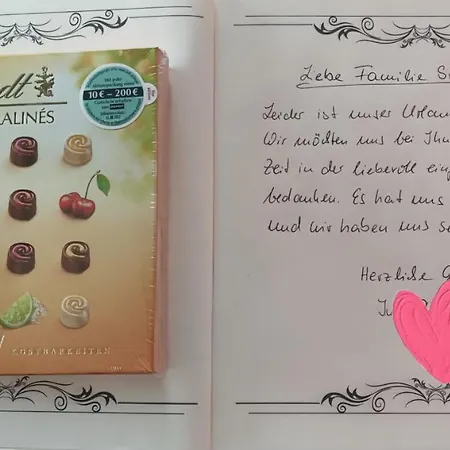 dt
ALINÉS
10 € – 200 €
KOSTBARKEITEN
Liebe Familie S
Leider ist unser Urlau
Wir möchten uns bei Ihn
Zeit in der liebevoll ein
bedanken. Es hat uns
und wir haben uns se
Herzliche G